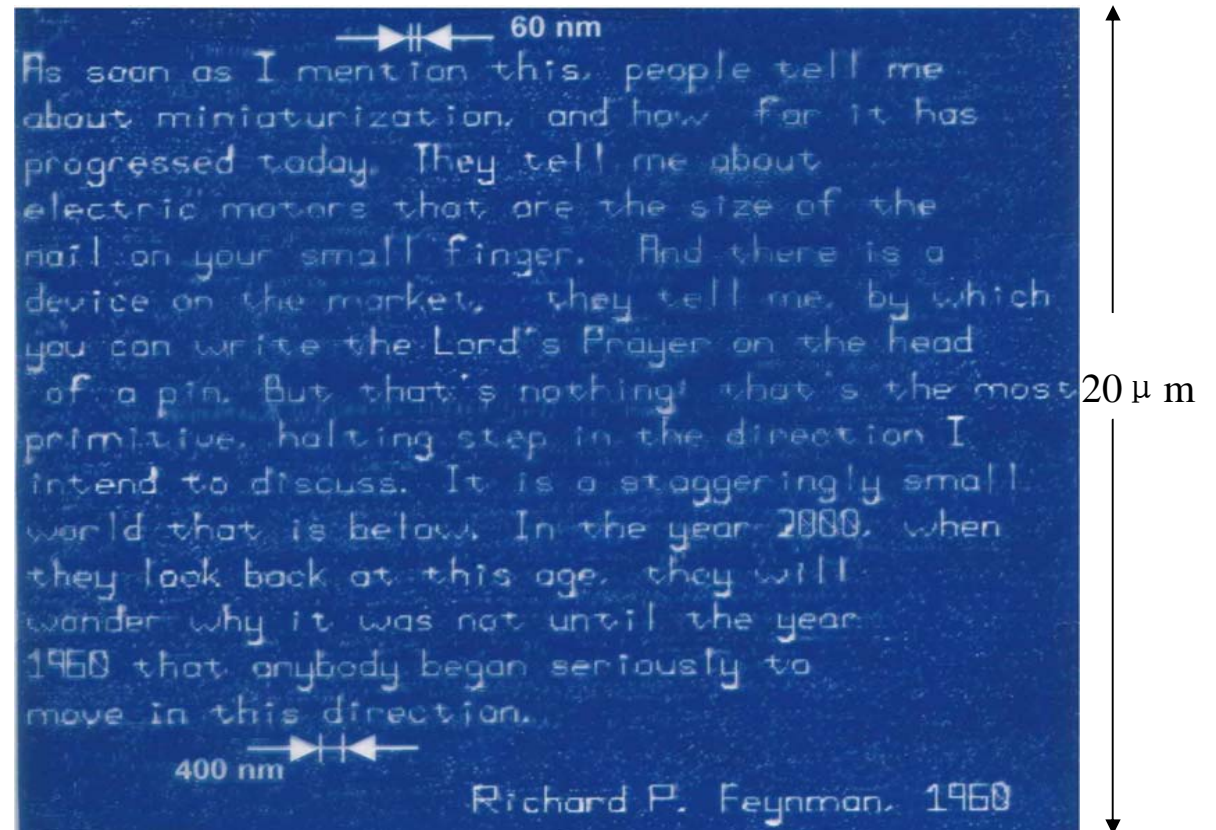 60 nm
As soon as I mention this, people tell me
about miniaturization, and how far it has
progressed today. They tell me about
electric motors that are the size of the
nail on your small finger. And there is a
device on the market, they tell me, by which
you can write the Lord's Prayer on the head
of a pin. But that's nothing; that's the most
20 μm
primitive, halting step in the direction I
intend to discuss. It is a staggeringly small
world that is below. In the year 2000, when
they look back at this age, they will
wonder why it was not until the year
1960 that anybody began seriously to
move in this direction.
400 nm
Richard P. Feynman, 1960